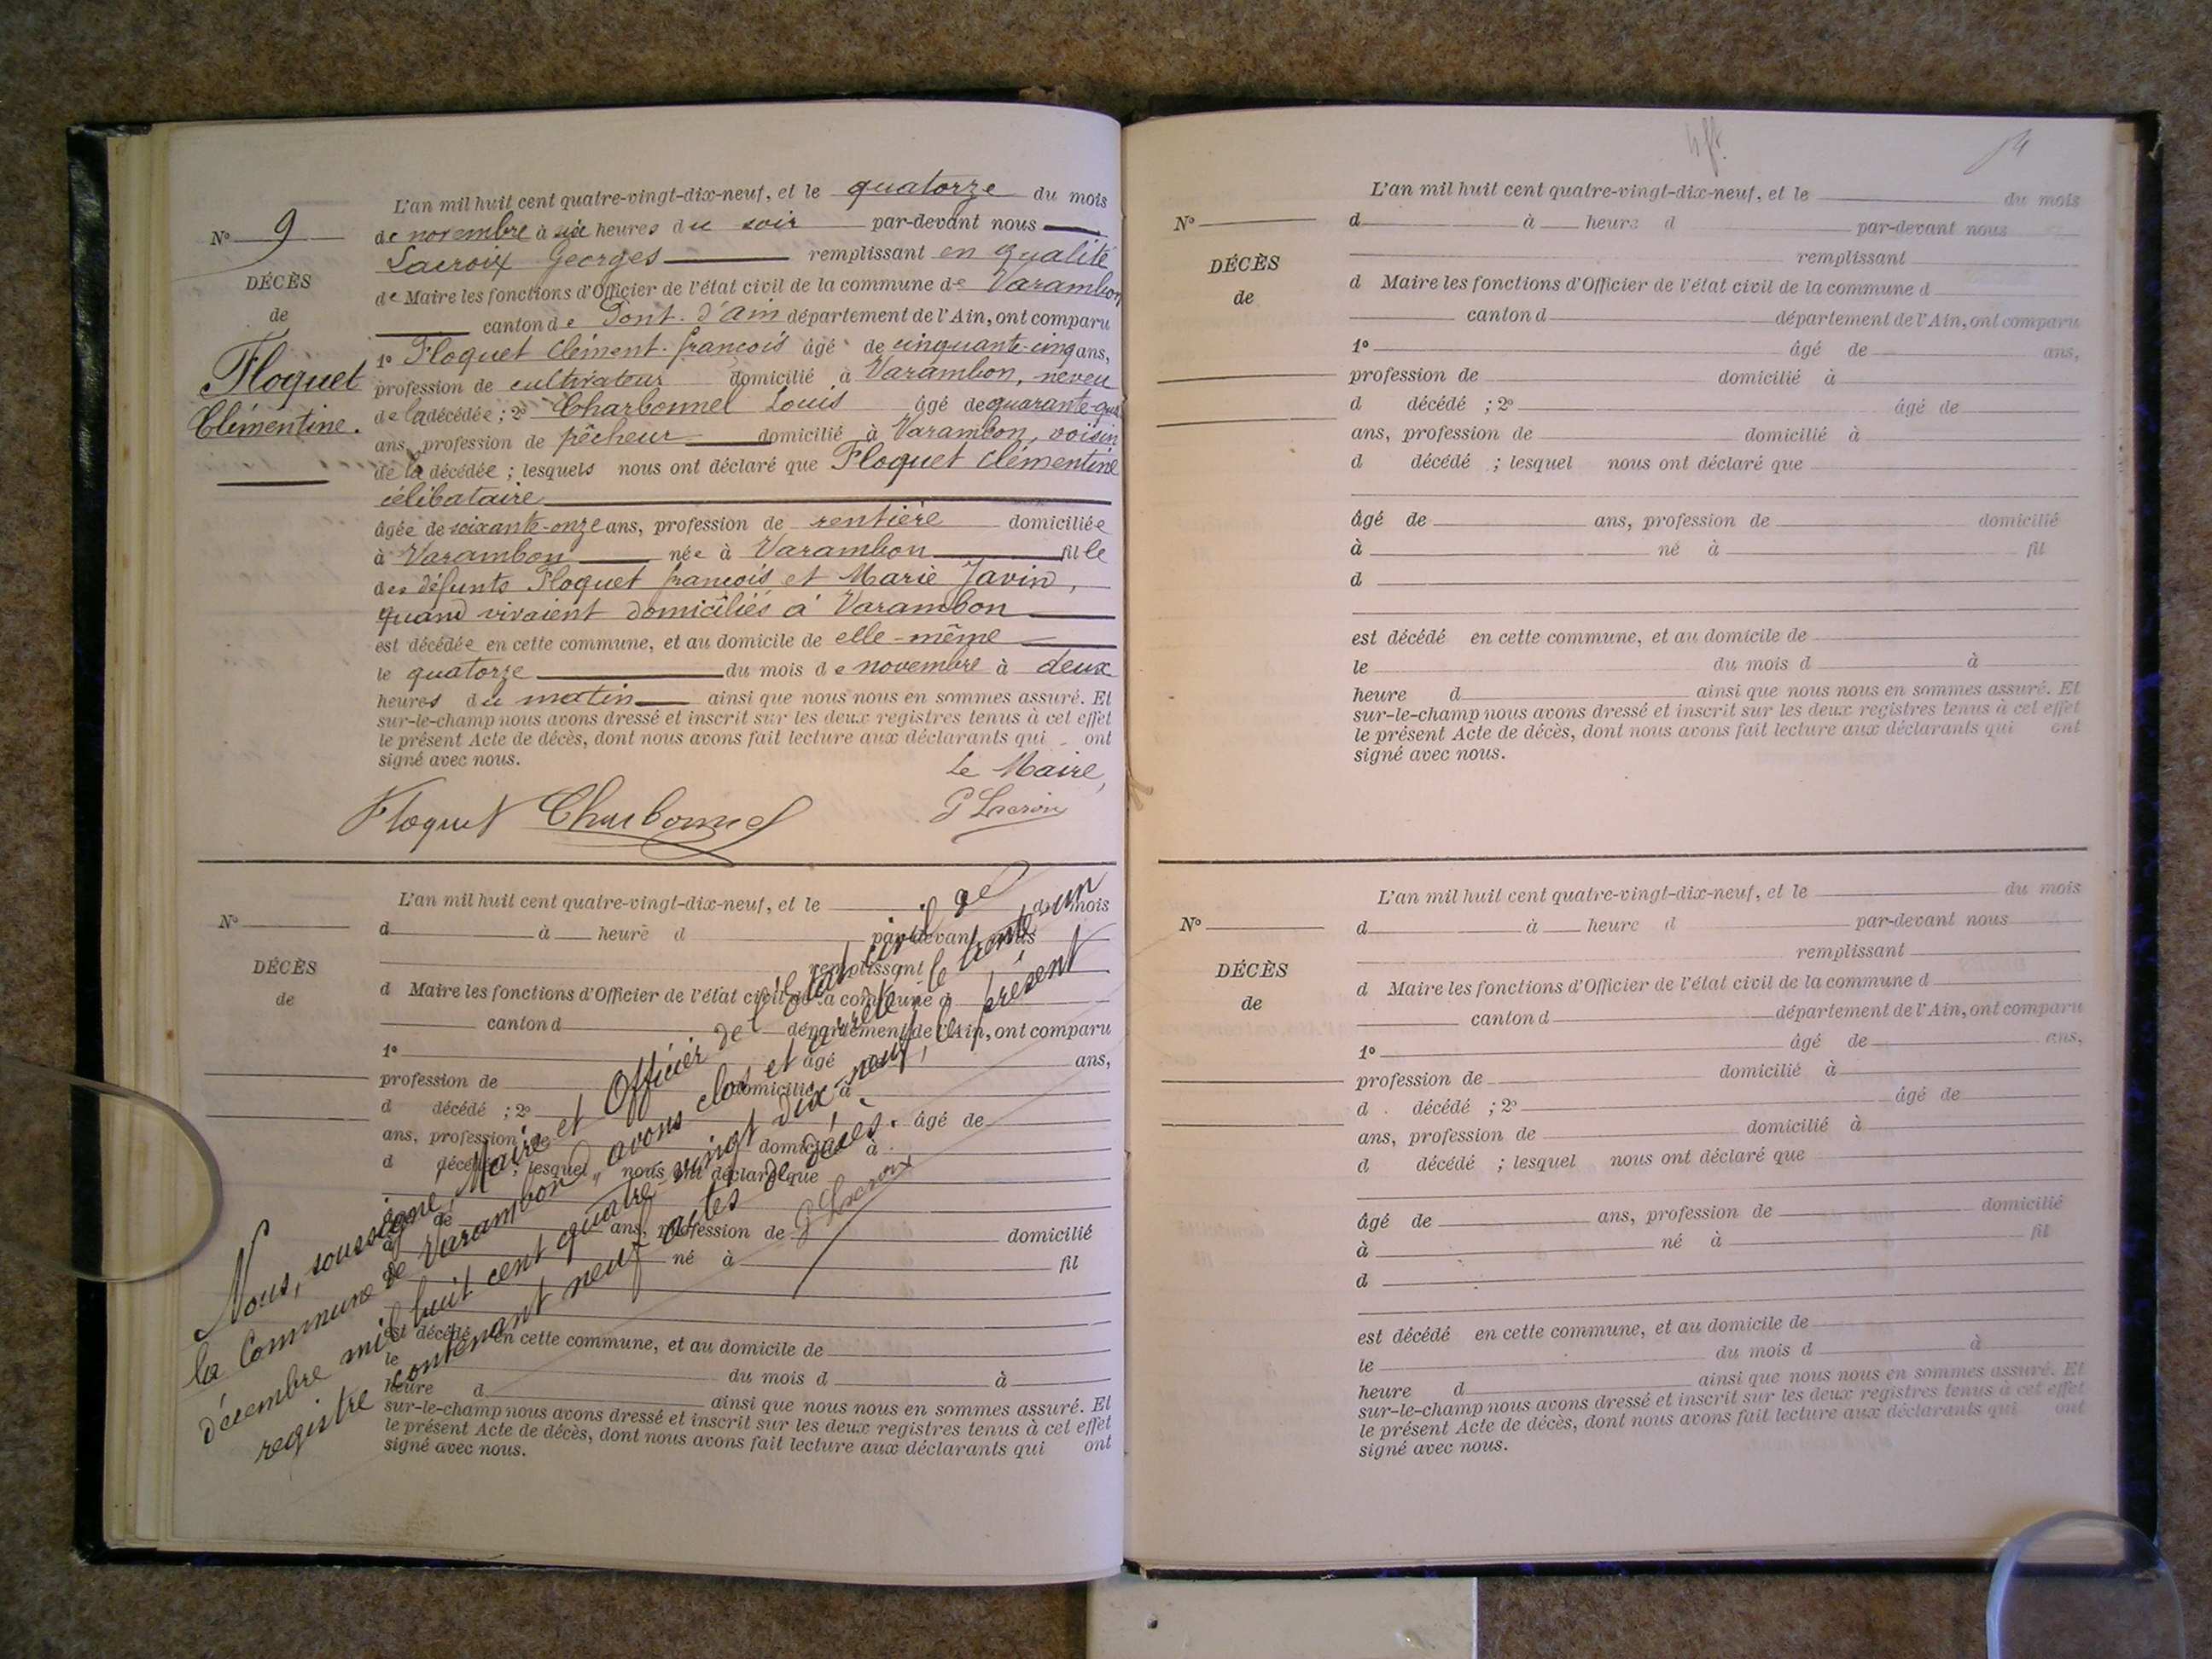 L'an mil huit cent quatre-vingt-dix-neuf, et le quatorze du mois
N° 9
de novembre à six heures du soir par-devant nous
Lacroix Georges remplissant en qualité
DÉCÈS
de Maire les fonctions d'Officier de l'état civil de la commune de Varambon
de
canton de Pont-d'Ain département de l'Ain, ont comparu
1° Floquet Clément-françois âgé de cinquante-cinq ans,
Floquet
profession de cultivateur domicilié à Varambon, neveu
Clémentine.
de la décédée ; 2° Charbonnel Louis âgé de quarante-
ans, profession de pêcheur domicilié à Varambon, voisin
de la décédée ; lesquels nous ont déclaré que Floquet Clémentine
célibataire
âgée de soixante-onze ans, profession de rentière domiciliée
à Varambon née à Varambon fille
des défunts Floquet françois et Marie Javin,
quand vivaient domiciliés à Varambon
est décédée en cette commune, et au domicile de elle-même
le quatorze du mois de novembre à deux
heures du matin ainsi que nous nous en sommes assuré. Et
sur-le-champ nous avons dressé et inscrit sur les deux registres tenus à cet effet
le présent Acte de décès, dont nous avons fait lecture aux déclarants qui ont
signé avec nous.
Le Maire,
Floquet Charbonnel G Lacroix
L'an mil huit cent quatre-vingt-dix-neuf, et le du mois
N°
d à heure d par-devant nous
remplissant
DÉCÈS
d Maire les fonctions d'Officier de l'état civil de la commune d
de
canton d département de l'Ain, ont comparu
1° âgé ans,
profession de domicilié à
d décédé ; 2° âgé de
ans, profession de domicilié à
d décédé ; lesquel nous ont déclaré que
âgé de ans, profession de domicilié
à né à fil
est décédé en cette commune, et au domicile de
le du mois d à
heure d ainsi que nous nous en sommes assuré. Et
sur-le-champ nous avons dressé et inscrit sur les deux registres tenus à cet effet
le présent Acte de décès, dont nous avons fait lecture aux déclarants qui ont
signé avec nous.
Nous, soussigné, Maire et Officier de l'Etat civil de
la Commune de Varambon, avons clos et arrêté le trente un
décembre mil huit cent quatre vingt dix-neuf, le présent
registre contenant neuf actes de décès.
G Lacroix
L'an mil huit cent quatre-vingt-dix-neuf, et le du mois
N°
d à heure d par-devant nous
remplissant
DÉCÈS
d Maire les fonctions d'Officier de l'état civil de la commune d
de
canton d département de l'Ain, ont comparu
1° âgé de ans,
profession de domicilié à
d décédé ; 2° âgé de
ans, profession de domicilié à
d décédé ; lesquel nous ont déclaré que
âgé de ans, profession de domicilié
à né à fil
d
est décédé en cette commune, et au domicile de
le du mois d à
heure d ainsi que nous nous en sommes assuré. Et
sur-le-champ nous avons dressé et inscrit sur les deux registres tenus à cet effet
le présent Acte de décès, dont nous avons fait lecture aux déclarants qui ont
signé avec nous.
L'an mil huit cent quatre-vingt-dix-neuf, et le du mois
N°
d à heure d par-devant nous
remplissant
DÉCÈS
d Maire les fonctions d'Officier de l'état civil de la commune d
de
canton d département de l'Ain, ont comparu
1° âgé de ans,
profession de domicilié à
d décédé ; 2° âgé de
ans, profession de domicilié à
d décédé ; lesquel nous ont déclaré que
âgé de ans, profession de domicilié
à né à fil
d
est décédé en cette commune, et au domicile de
le du mois d à
heure d ainsi que nous nous en sommes assuré. Et
sur-le-champ nous avons dressé et inscrit sur les deux registres tenus à cet effet
le présent Acte de décès, dont nous avons fait lecture aux déclarants qui ont
signé avec nous.